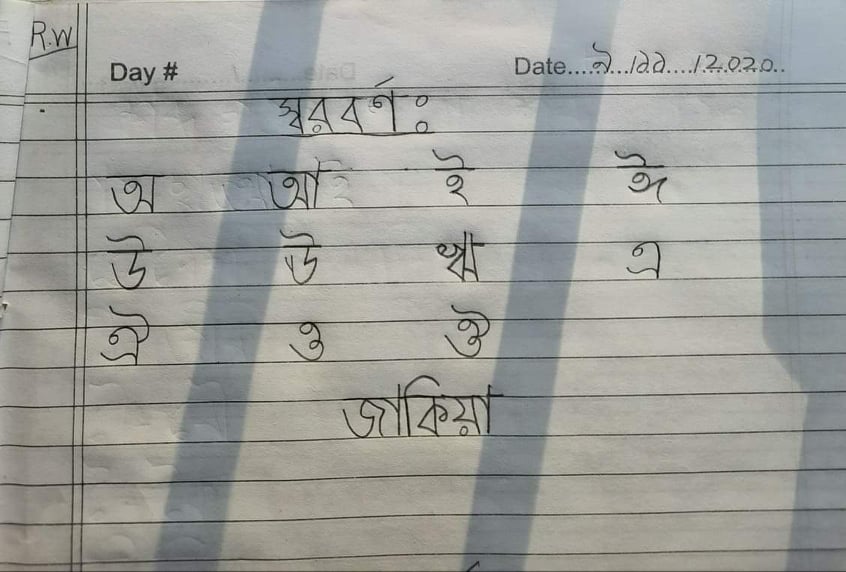 R.W
Day # Date.....৯...১১....2020..
স্বরবর্ণ ঃ
অ আ ই ঈ
উ ঊ ঋ এ
ঐ ও ঔ
জাকিয়া